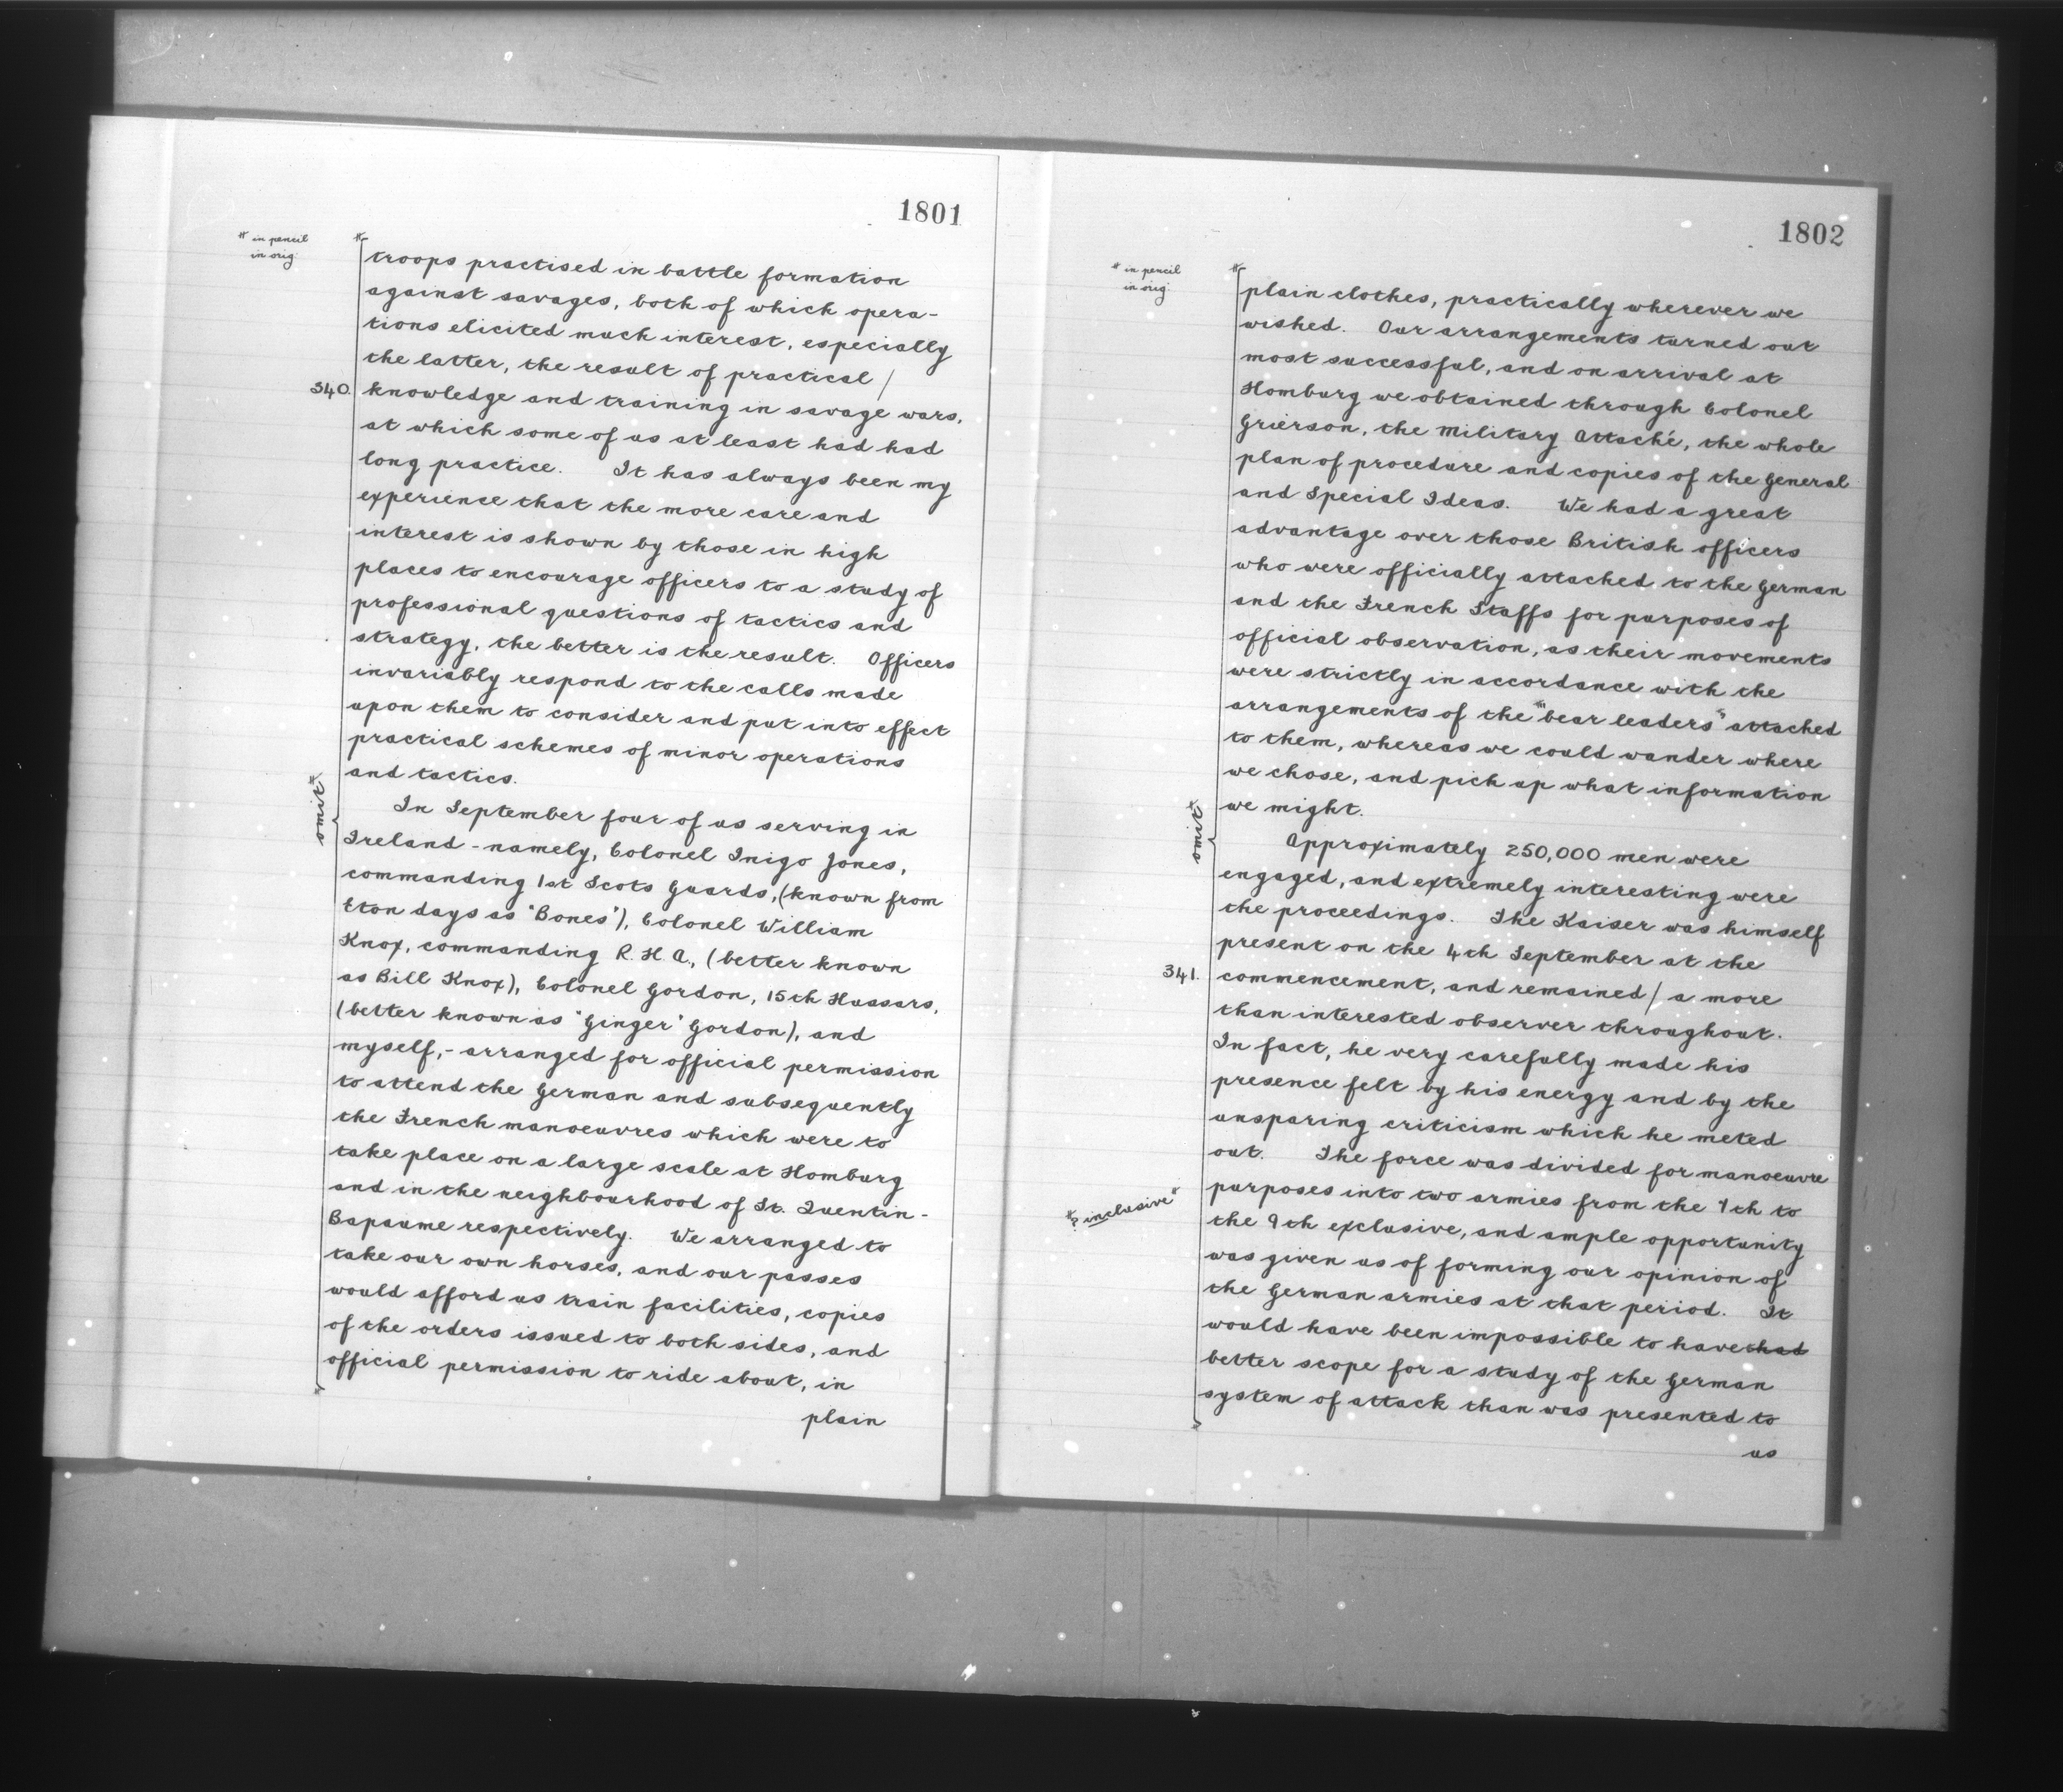 1801
* in pencil
in orig:
troops practised in battle formation
against savages, both of which opera-
tions elicited much interest, especially
the latter, the result of practical /
340. knowledge and training in savage wars,
at which some of us at least had had
long practice. It has always been my
experience that the more care and
interest is shown by those in high
places to encourage officers to a study of
professional questions of tactics and
strategy, the better is the result. Officers
invariably respond to the calls made
upon them to consider and put into effect
practical schemes of minor operations
and tactics.
omit*
In September four of us serving in
Ireland - namely, Colonel Inigo Jones,
commanding 1st Scots Guards, (known from
Eton days as "Bones"), Colonel William
Knox, commanding R. H. A., (better known
as Bill Knox), Colonel Gordon, 15th Hussars,
(better known as "Ginger" Gordon), and
myself, - arranged for official permission
to attend the German and subsequently
the French manoeuvres which were to
take place on a large scale at Homburg
and in the neighbourhood of St. Quentin -
Bapaume respectively. We arranged to
take our own horses, and our passes
would afford us train facilities, copies
of the orders issued to both sides, and
official permission to ride about, in
plain
1802
* in pencil
in orig:
plain clothes, practically wherever we
wished. Our arrangements turned out
most successful, and on arrival at
Homburg we obtained through Colonel
Grierson, the Military Attaché, the whole
plan of procedure and copies of the General
and Special Ideas. We had a great
advantage over those British officers
who were officially attached to the German
and the French Staffs for purposes of
official observation, as their movements
were strictly in accordance with the
arrangements of the *"bear leaders"* attached
to them, whereas we could wander where
we chose, and pick up what information
we might.
omit*
Approximately 250,000 men were
engaged, and extremely interesting were
the proceedings. The Kaiser was himself
present on the 4th September at the
341. commencement, and remained / a more
than interested observer throughout.
In fact, he very carefully made his
presence felt by his energy and by the
unsparing criticism which he meted
out. The force was divided for manoeuvre
purposes into two armies from the 7th to
*? inclusive*
the 9th exclusive, and ample opportunity
was given us of forming our opinion of
the German armies at that period. It
would have been impossible to have had
better scope for a study of the German
system of attack than was presented to
us